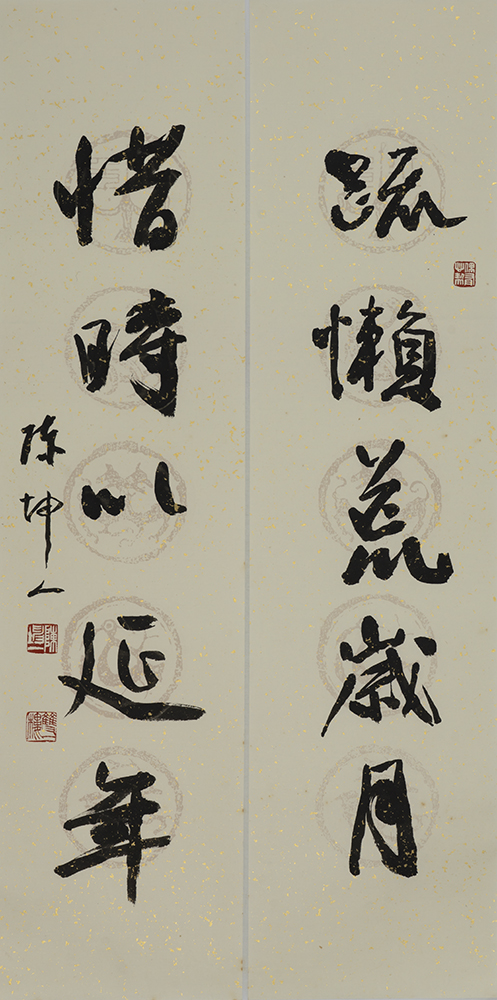 疏懶荒歲月
惜時以延年
陳坤一